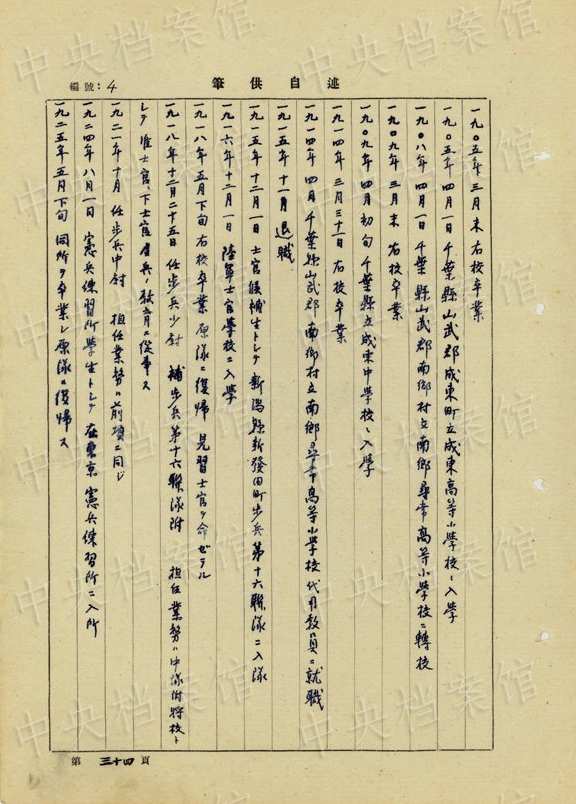 述自供筆
編號:4
一九〇五年三月末右校卒業
一九〇五年四月一日千葉縣山武郡成東町立成東高等小學校ニ入学
一九〇八年四月一日千葉縣山武郡南鄉村立南鄉尋常高等小學校ニ轉校
一九〇九年三月末右校卒業
一九〇九年四月初旬千葉縣立成東中學校ニ入学
一九一四年三月三十一日右校卒業
一九一四年四月千葉縣山武郡南鄉村立南鄉尋常高等小学校代用教員ニ就職
一九一五年十一月退職
一九一五年十二月一日士官候補生トシテ新潟縣新發田町步兵第十六聯隊ニ入隊
一九一六年十二月一日陸軍士官學校ニ入学
一九一八年五月下旬右校卒業原隊ニ復帰見習士官ヲ命ゼラル
一九一八年十二月二十五日任步兵少尉補步兵第十六聯隊附担任業務ハ中隊附将校ト
シテ准士官、下士官虚兵ノ教育ニ從事ス
一九二一年十月任步兵中尉担任業務ハ前項ニ同ジ
一九二四年八月一日憲兵練習所學生トシテ在東京憲兵練習所ニ入所
一九二五年五月下旬同所ヲ卒業シ原隊ニ復帰ス
第三十四頁
中央档案馆